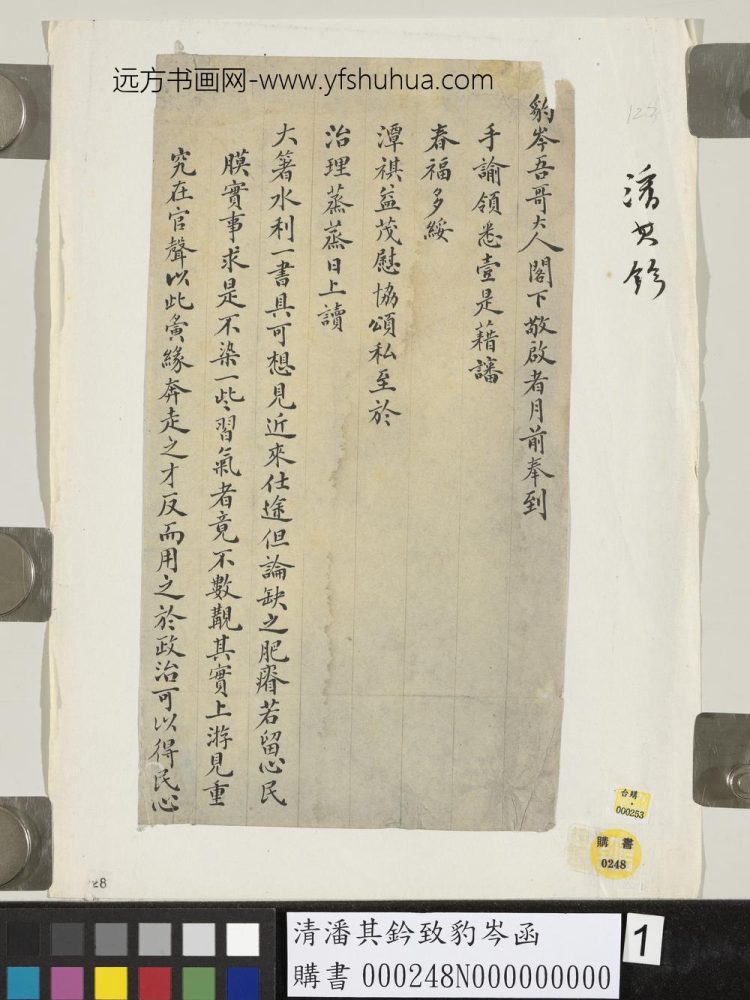 远方书画网-www.yfshuhua.com
123
潘其鈐
豹岑吾哥大人閣下敬啟者月前奉到
手諭領悉壹是藉諗
春福多綏
潭祺益茂慰協頌私至於
治理蒸蒸日上讀
大箸水利一書具可想見近來仕途但論缺之肥瘠若留心民
膜實事求是不染一些習氣者竟不數覯其實上游見重
究在官聲以此夤緣奔走之才反而用之於政治可以得民心
台購
000253
購書
0248
28
清潘其鈐致豹岑函
購書 000248N000000000
1